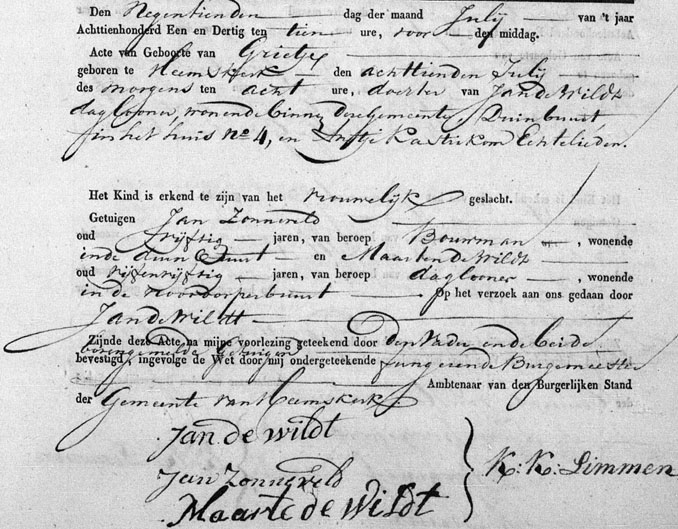 Den Negentienden dag der maand Julij van 't jaar
Achttienhonderd Een en Dertig ten tien ure, voor den middag.
Acte van Geboorte van Grietje
geboren te Heemskerk den achttienden Julij
des morgens ten acht ure, dochter van Jan de Wildt
daglooner, wonende binnen dese gemeente, Duinbuurt
in het huis no 4, en Antje Kastrikom Echtelieden.
Het Kind is erkend te zijn van het vrouwelijk geslacht.
Getuigen Jan Zonneveld
oud vijftig jaren, van beroep Bouwman, wonende
in de duin Buurt en Maarten de Wildt
oud vijfenvijftig jaren, van beroep daglooner, wonende
in de noordorperbuurt Op het verzoek aan ons gedaan door
Jan de Wildt
Zijnde deze Acte na mijne voorlezing geteekend door den Vader en de beide
bovengemelde getuigen
bevestigd, ingevolge de Wet door mij ondergeteekende fungerende Burgemeester
Ambtenaar van den Burgerlijken Stand
der Gemeente van Heemskerk
Jan de wildt
Jan Zonneveld
Maarte de Wildt
K: K: Limmen